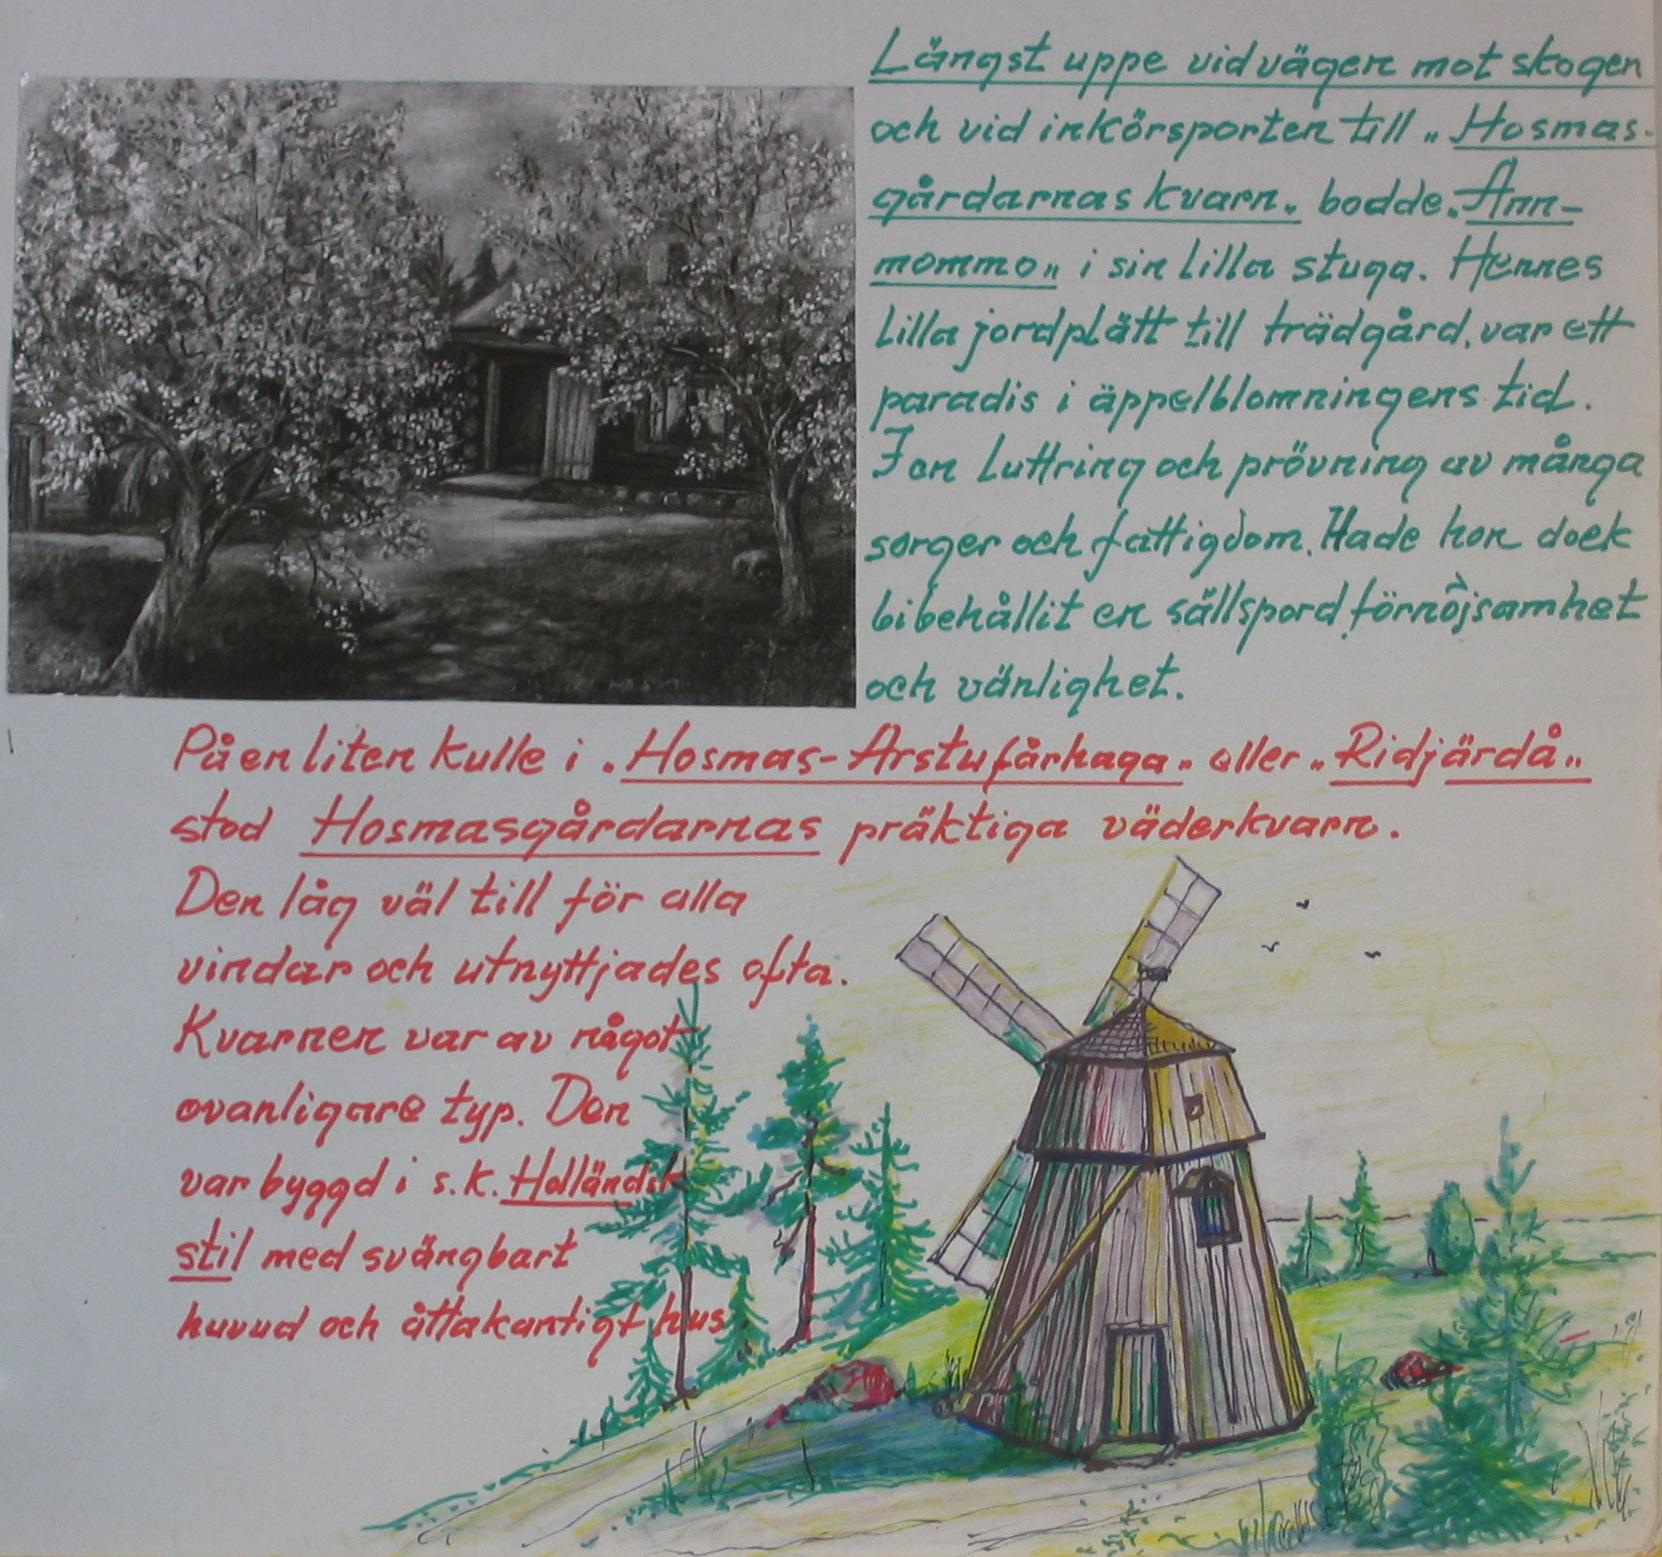 Längst uppe vid vägen mot skogen
och vid inkörsporten till „Hosmas-
gårdarnas kvarn„ bodde „Ann-
mommo„ i sin lilla stuga. Hennes
lilla jordplätt till trädgård, var ett
paradis i äppelblomningens tid.
I en luttring och prövning av många
sorger och fattigdom. Hade hon dock
bibehållit en sällspord förnöjsamhet
och vänlighet.
På en liten kulle i „Hosmas-Arstufårhaga„ eller „Ridjärdå„
stod Hosmasgårdarnas präktiga väderkvarn.
Den låg väl till för alla
vindar och utnyttjades ofta.
Kvarnen var av något
ovanligare typ. Den
var byggd i s.k. Holländsk
stil med svängbart
huvud och åttakantigt hus.